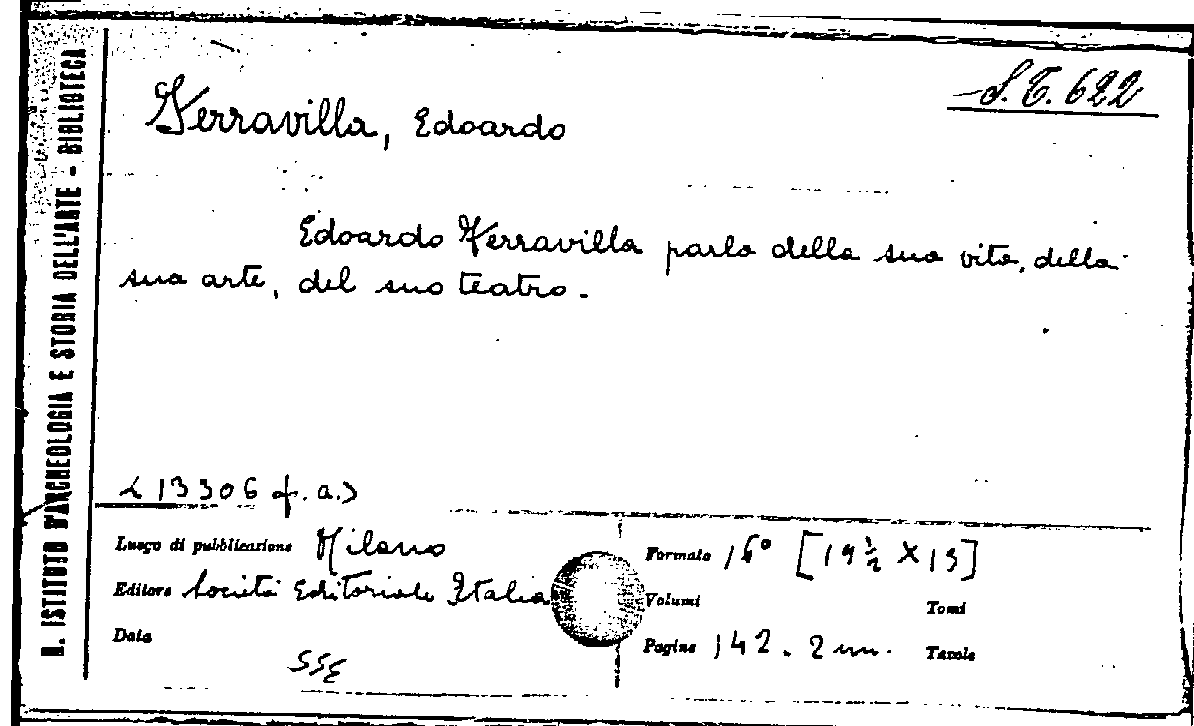 R. ISTITUTO D'ARCHEOLOGIA E STORIA DELL'ARTE - BIBLIOTECA
S. T. 622
Ferravilla, Edoardo
Edoardo Ferravilla parla della sua vita, della
sua arte, del suo teatro.
<13306 f. a.>
Luogo di pubblicazione Milano
Editore Società Editoriale Italia
Data
Formato 16° [19½ x 13]
Volumi Tomi
Pagine 142. 2 nn. Tavole